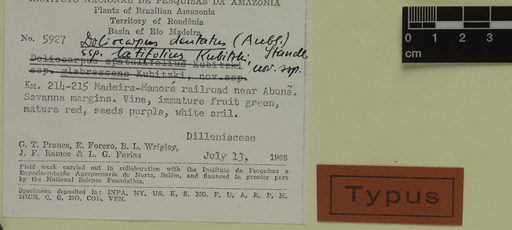 INSTITUTO NACIONAL DE PESQUISAS DA AMAZONIA
Plants of Brazilian Amazonia
Territory of Rondônia
Basin of Rio Madeira
No. 5927 Doliocarpus dentatus (Aubl.) Standl.
ssp. latifolius Kubitzki, nov. ssp.
Doliocarpus spatulifolius Kubitzki
ssp. glabrescens Kubitzki, nov.ssp.
Km. 214-215 Madeira-Mamoré railroad near Abunã.
Savanna margins. Vine, immature fruit green,
mature red, seeds purple, white aril.
Dilleniaceae
G. T. Prance, E. Forero, B. L. Wrigley,
J. F. Ramos & L. G. Farias July 13, 1968
Field work carried out in collaboration with the Instituto de Pesquisas e
Experimentação Agropecuaria do Norte, Belém, and financed in greater part
by the National Science Foundation.
Specimens deposited in: INPA, NY, US, K, S, MG, F, U, A, R, P, M,
MICH, G, G, MO, COL, VEN.
0 1 2 3
cm
Typus